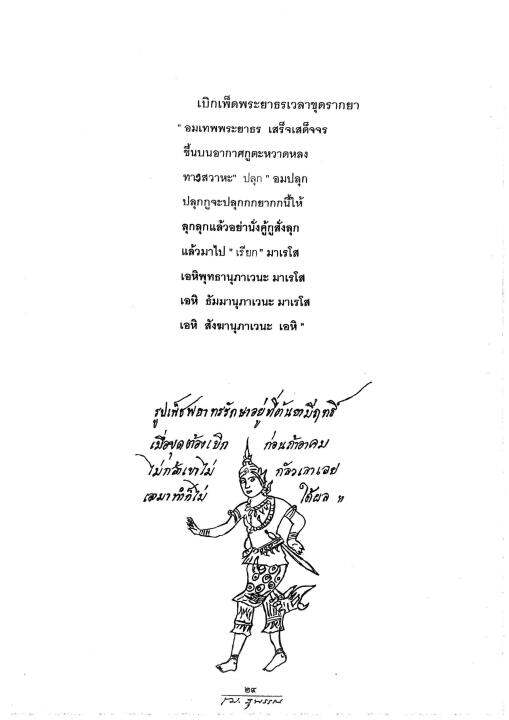 เบิกเพ็ดพระยาธรเวลาขุดรากยา
" อมเทพพระยาธร เสร็จเสด็จจร
ขึ้นบนอากาศกูตะหวาดหลง
ทางสวาหะ" ปลุก " อมปลุก
ปลุกกูจะปลุกกกยากกนี้ให้
ลุกลุกแล้วอย่านั่งคู้กูสั่งลุก
แล้วมาไป " เรียก " มาเรโส
เอหิพุทธานุภาเวนะ มาเรโส
เอหิ ธัมมานุภาเวนะ มาเรโส
เอหิ สังฆานุภาเวนะ เอหิ "
รูปเพ็ชพยาทรรักษาอยู่ที่ต้นยามีฤทธิ์
เมื่อขุดต้องเบิก ก่อนถ้าอาคม
ไม่กล้าเขาไม่ กลัวเราเลย
เอามาทำก็ไม่ ได้ผล "
๒๙